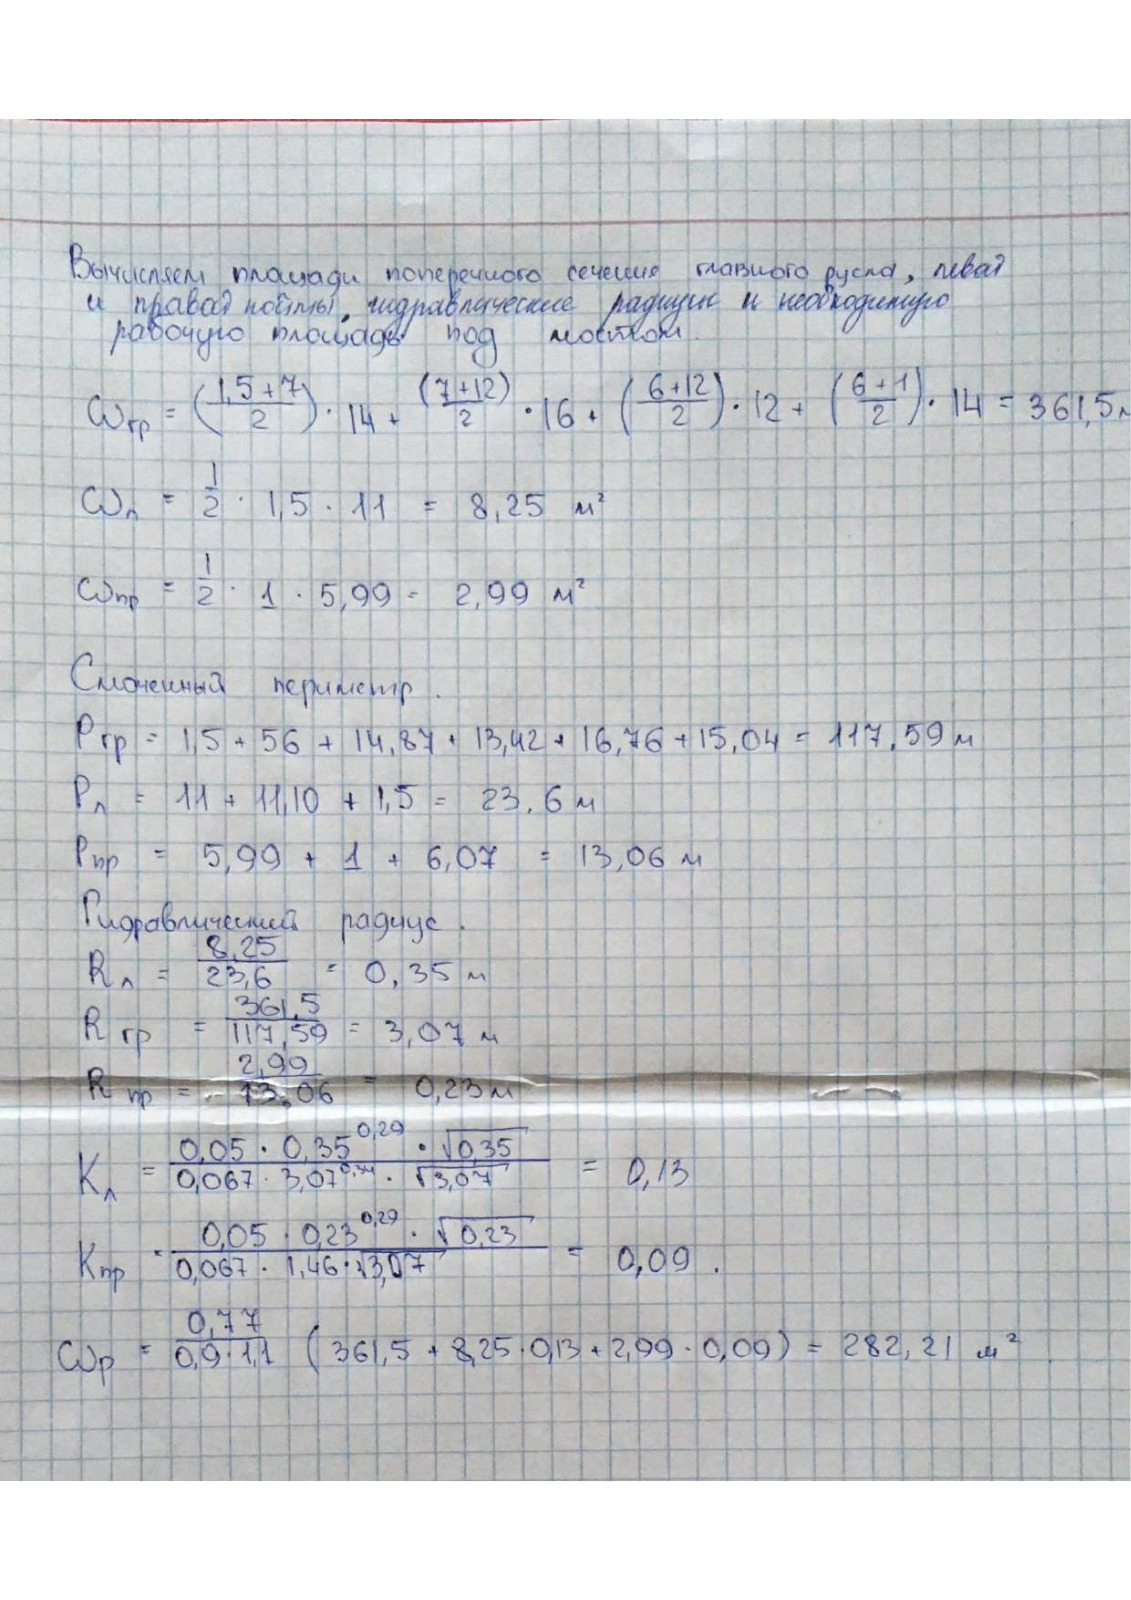 Вычисляем площади поперечного сечения главного русла, левой
и правой поймы, гидравлические радиусы и необходимую
рабочую площадь под мостом.
ωгр = ((1,5+7)/2) · 14 + (7+12)/2 · 16 + ((6+12)/2) · 12 + ((6+1)/2) · 14 = 361,5 м
ωл = 1/2 · 1,5 · 11 = 8,25 м²
ωпр = 1/2 · 1 · 5,99 = 2,99 м²
Смоченный периметр.
Ргр = 1,5 + 56 + 14,87 + 13,42 + 16,76 + 15,04 = 117,59 м
Рл = 11 + 11,10 + 1,5 = 23,6 м
Рпр = 5,99 + 1 + 6,07 = 13,06 м
Гидравлический радиус.
Rл = 8,25/23,6 = 0,35 м
Rгр = 361,5/117,59 = 3,07 м
Rпр = 2,99/13,06 = 0,23 м
Кл = (0,05 · 0,35^0,29 · √0,35)/(0,067 · 3,07 · √3,07) = 0,13
Кпр = (0,05 · 0,23^0,29 · √0,23)/(0,067 · 1,46 · √3,07) = 0,09.
ωр = 0,77/(0,9 · 1,1) (361,5 + 8,25 · 0,13 + 2,99 · 0,09) = 282,21 м²